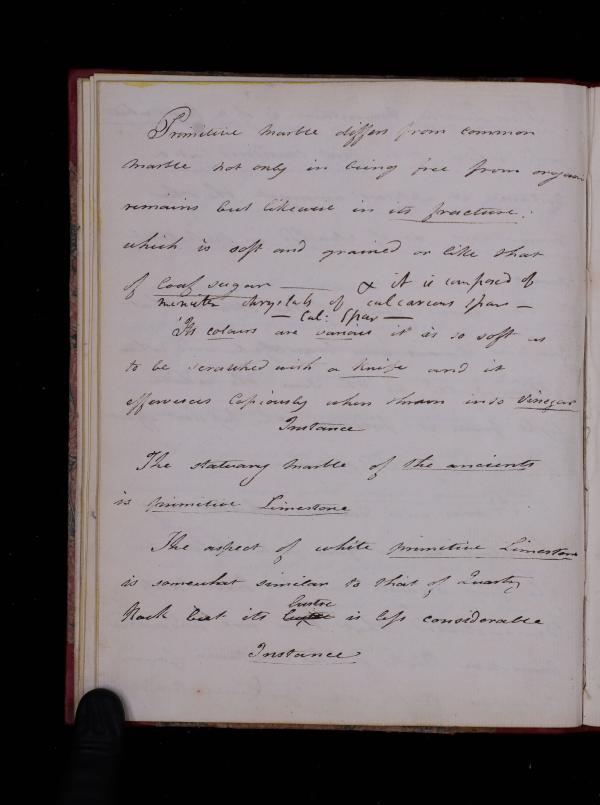 Primitive marble differs from common
marble not only in being free from organic
remains but likewise in its fracture:
which is soft and grained or like that
of Loaf sugar —— & it is composed of
minute chrystals of calcareous spar —
— Cal: Spar —
Its colours are various it is so soft as
to be scratched with a knife and it
effervesces Copiously when thrown into Vinegar
Instance
The statuary marble of the ancients
is primitive Limestone
The aspect of white primitive Limestone
is somewhat similar to that of Quartz
lustre
Rock but its is less considerable
Instance